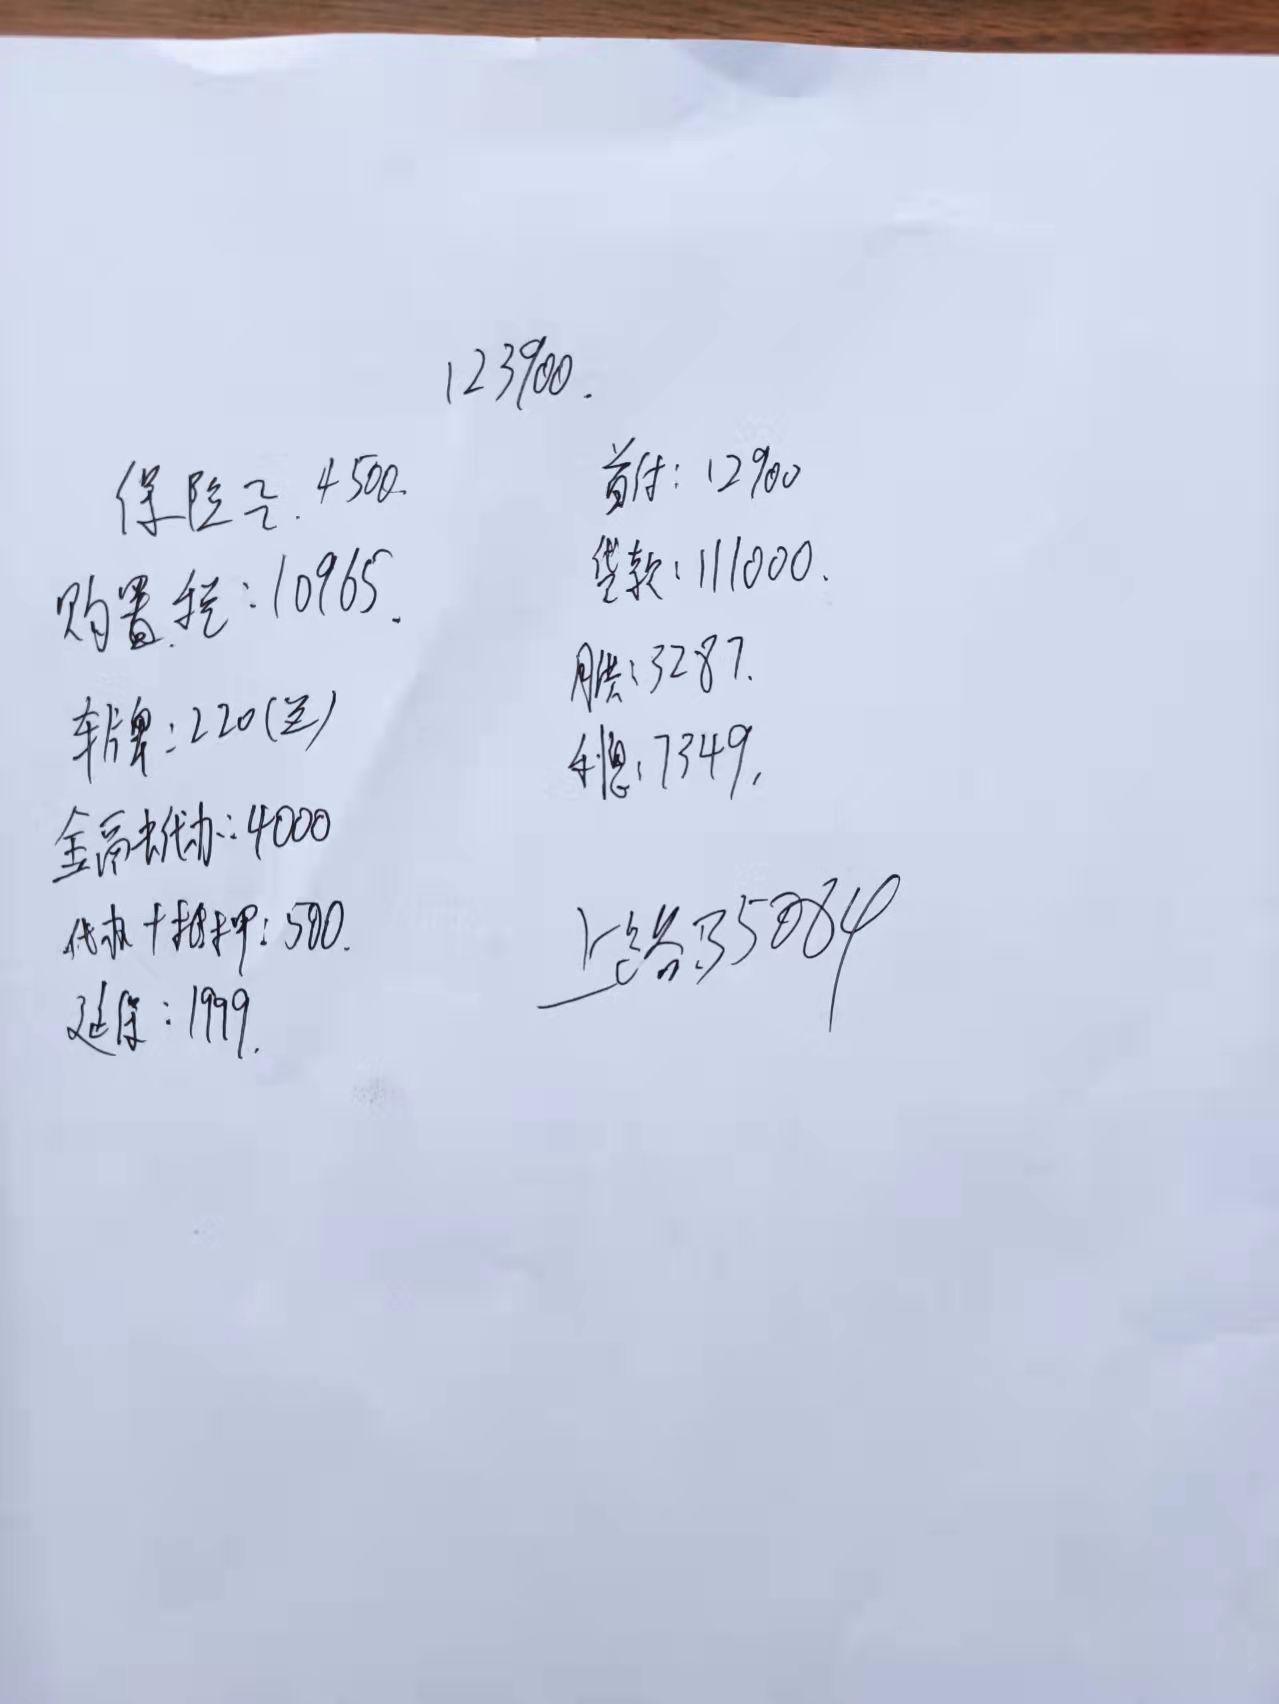 123900.
保险 4500.
购置税:10965.
车牌:220
金融代办:4000
代办+抵押:500.
延保:1999.
首付:12900
贷款:111000.
月供:3287.
利息:7349.
上路:35084